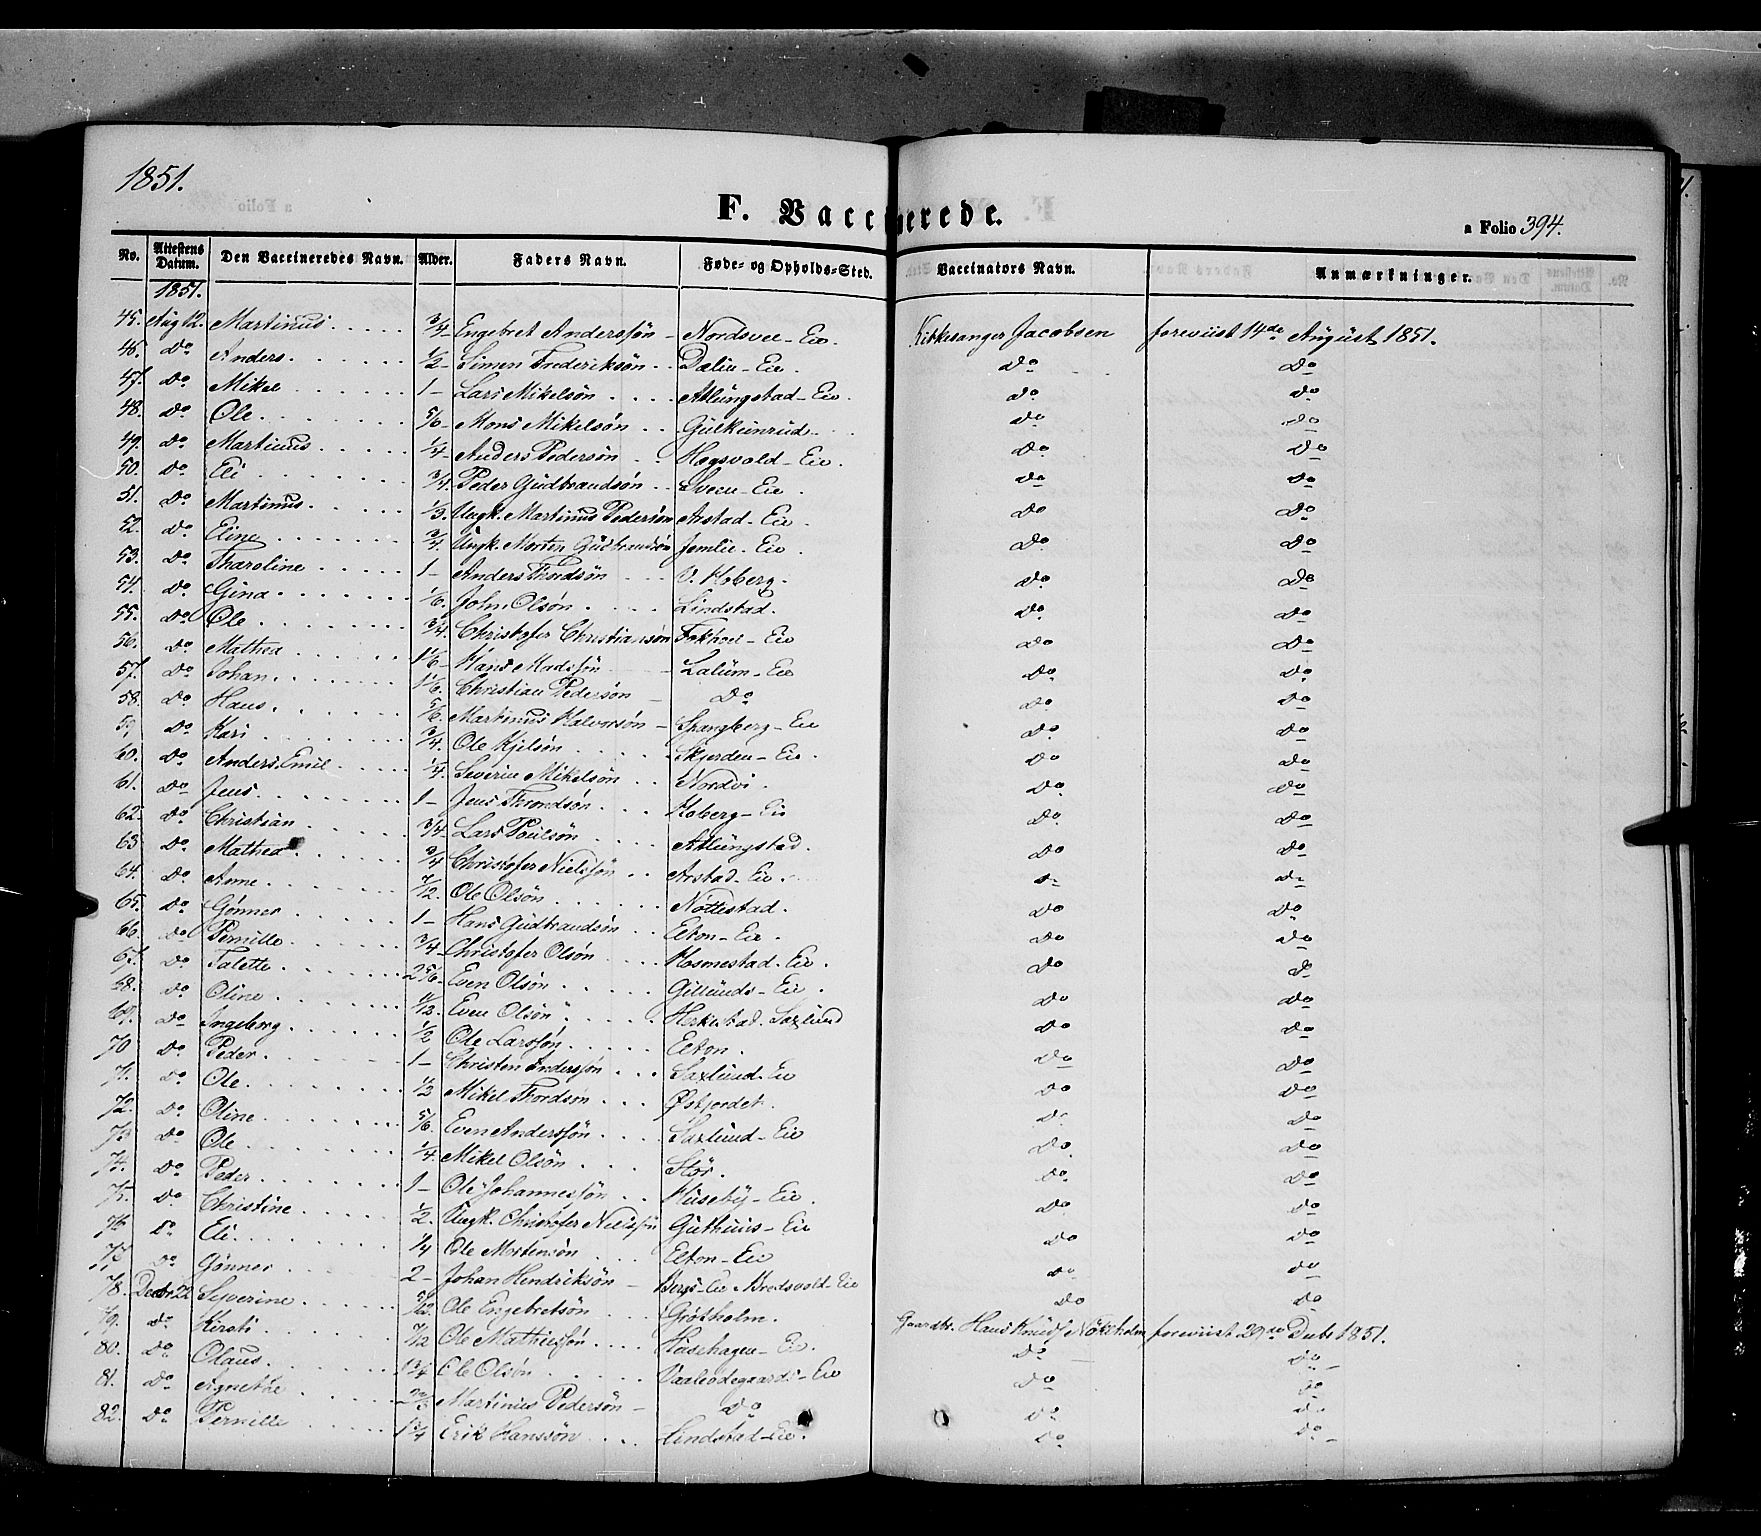 1851.
F. Vaccinerede.
a Folio 394.
No. Attestens Datum. Den Vaccineredes Navn. Alder. Faders Navn. Føde- og Opholds-Sted. Vaccinators Navn. Anmærkninger.
1851.
45. Aug 12. Martinus 3/4 Engebret Anderssøn Nordsvee-Eie. Kirkesanger Jacobsen foreviist 14de August 1851.
46. Do Anders. 1/2 Simen Frederiksøn Dælin-Eie. Do Do
47. Do Mikel 1 Lars Mikelsøn Atlungstad-Eie. Do Do
48. Do Ole. 5/6 Mons Mikelsøn Do Do
49. Do Martinus 1/4 Anders Pedersøn Hogsvold-Eie. Do Do
50. Do Eli 3/4 Peder Gudbrandsøn Sveen-Eie. Do Do
51. Do Martinus 1/3 Ungk. Martinus Pedersøn Arstad-Eie. Do Do
52. Do Eline 3/4 Ungk. Morten Gudbrandsøn Jemlie-Eie. Do Do
53. Do Tharoline 1 Anders Thordsøn V. Hoberg. Do Do
54. Do Gina 1/6 John Olsøn Lindstad. Do Do
55. Do Ole 3/4 Christofer Christiansøn Fokhoel-Eie Do Do
56. Do Mathea 1 1/6 Hans Madssøn Lalum-Eie Do Do
57. Do Johan 1 1/6 Christian Pedersøn Do Do Do
58. Do Hans 5/6 Martinus Halvorsøn Spangberg-Eie Do Do
59. Do Kari 3/4 Ole Kjelsøn Skjerden-Eie. Do Do
60. Do Anders Emil 1/4 Severin Mikelsøn Nordvi. Do Do
61. Do Jens 1 Jens Throndsøn Hoberg-Eie Do Do
62. Do Christian 3/4 Lars Poulsøn Atlungstad. Do Do
63. Do Mathea 3/4 Christofer Nielssøn Arstad-Eie. Do Do
64. Do Anne 7/12 Ole Olsøn Nøttestad. Do Do
65. Do Gønner 1 Hans Gudbrandsøn Elton-Eie. Do Do
66. Do Pernille 3/4 Christofer Olsøn Hosmestad-Eie. Do Do
67. Do Talette 2 5/6 Even Olsøn Gillunds-Eie. Do Do
68. Do Oline Even Olsøn Herkestad. Saxlund Do Do
69. Do Ingeborg 1/2 Ole Larssøn Elton. Do Do
70 Do Peder 1 Christen Anderssøn Saxlund-Eie Do Do
71. Do Ole 1/2 Mikel Thordsøn Østjordet. Do Do
72. Do Oline 5/6 Even Anderssøn Saxlund-Eie Do Do
73 Do Ole 1/4 Mikel Olsøn Stør. Do Do
74. Do Peder 1 Ole Johannessøn Huseby-Eie. Do Do
75. Do Christine 1/2 Ungk. Christofer Nielssøn Guthuus-Eie Do Do
76 Do Eli 1/4 Ole Mortensøn Elton-Eie Do Do
77 Do Gønner 2 Johan Hendriksøn Bergs-Eie Bredsvold-Eie Do Do
78. Decbr 22 Severine 5/12 Ole Engebretsøn Grøtholm. Gaardbr. Hans Knuds. Nökleholm foreviist 29de Decbr 1851.
79. Do Kirsti 7/12 Ole Mathiessøn Hasehagen-Eie. Do Do
80. Do Olaus 1 3/4 Ole Olsøn Vaaleodegaards-Eie Do Do
81. Do Agnethe 2 2/3 Martinus Pedersøn Do Do Do
82. Do Pernille 1 3/4 Erik Hanssøn Lindstad-Eie. Do Do